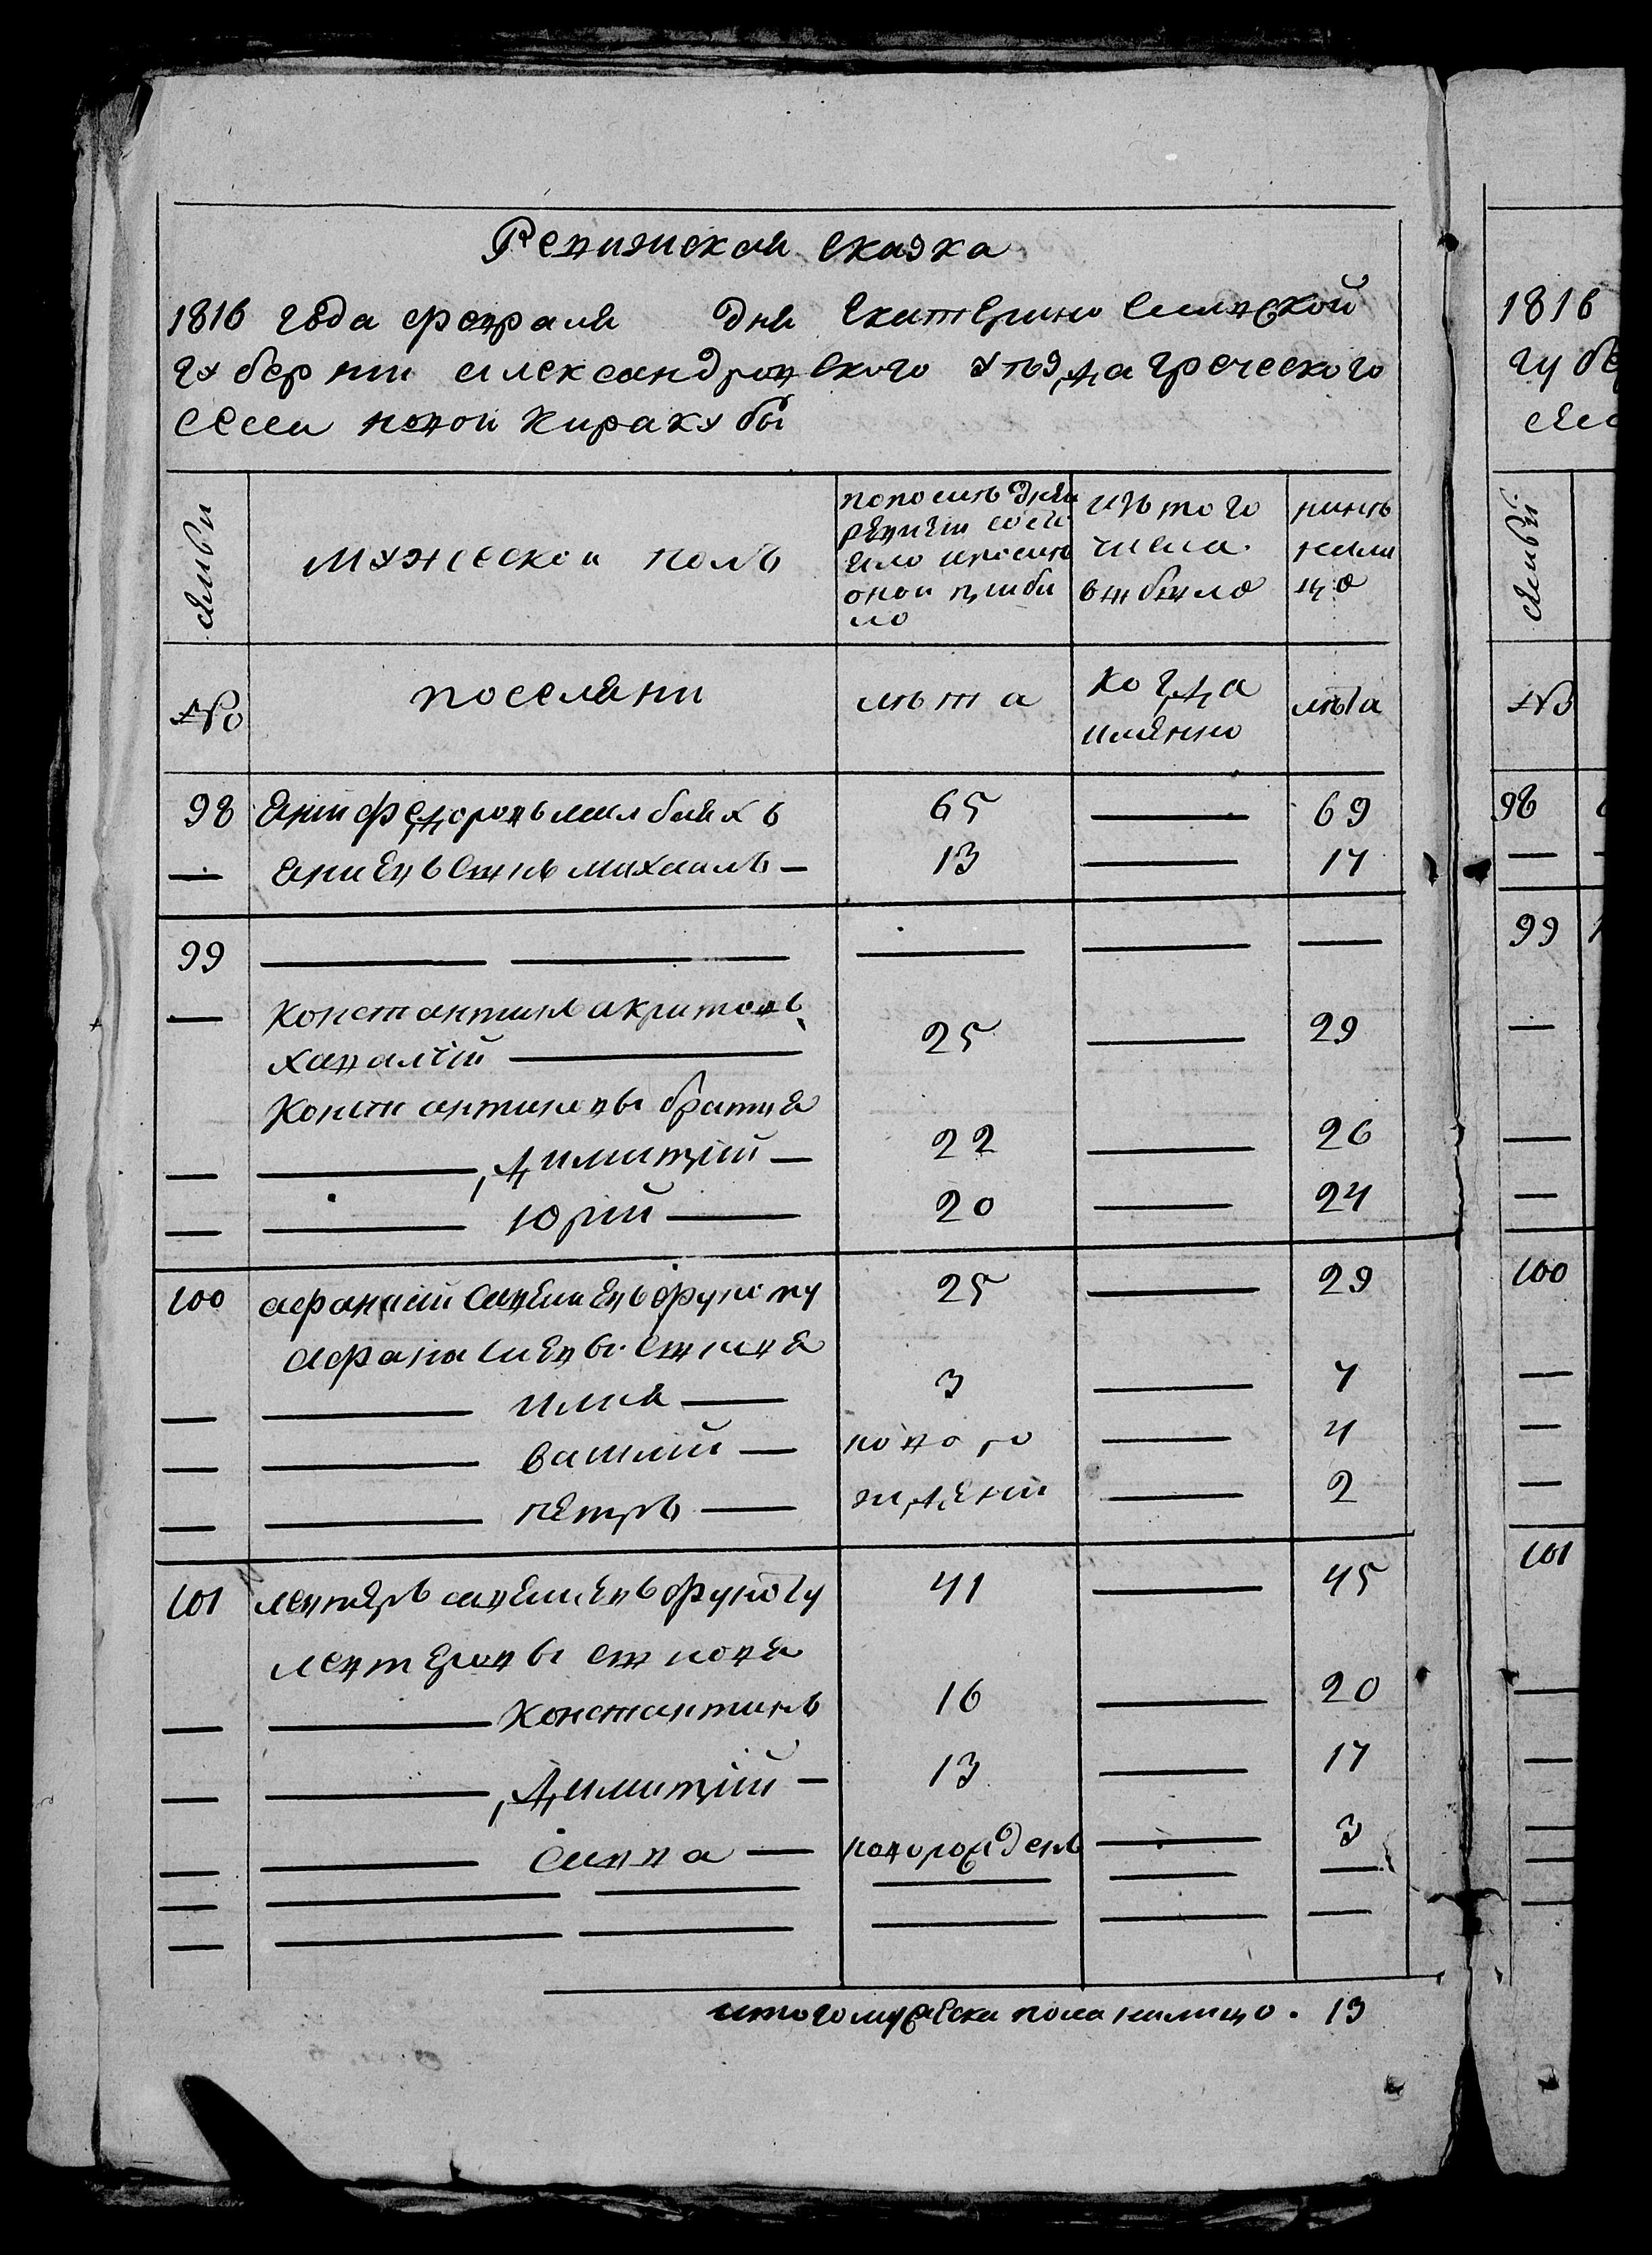 Ревизская сказка
1816 года февраля дня Екатеринославской
губернии александровского уезда греческого
села новой Каракубы
семьи
мужеской полъ
попоследней
ревизии состо
яло и после
оной прибы
ло
изъ того
числа
выбыло
ныне
нали
цо
№
поселяни
лѣта
когда
имянно
лѣта
98 Яни федоровъ 65 — 69
— яниевъ сынъ михаилъ — 13 — 17
99 — — — — —
— Константинъ акритовъ
хавалчій — 25 — 29
Константиновы братия
— — Димитрій — 22 — 26
— — Юрий — 20 — 24
100 афанасий савелиевъ 25 — 29
афанасиевы сыновя
— — илия — 3 — 7
— — василий — новоро — 4
— — петръ — ждении — 2
101 левтеръ савелиевъ 41 — 45
левтеровы сыновя
— — Константинъ 16 — 20
— — Димитрий — 13 — 17
— — савва — новорожденъ — 3
— — — — — —
— — — — — —
итого мужеска пола налицо. 13
1816
губе
село
семьи
№
98
—
99
—
—
—
100
—
—
—
101
—
—
—